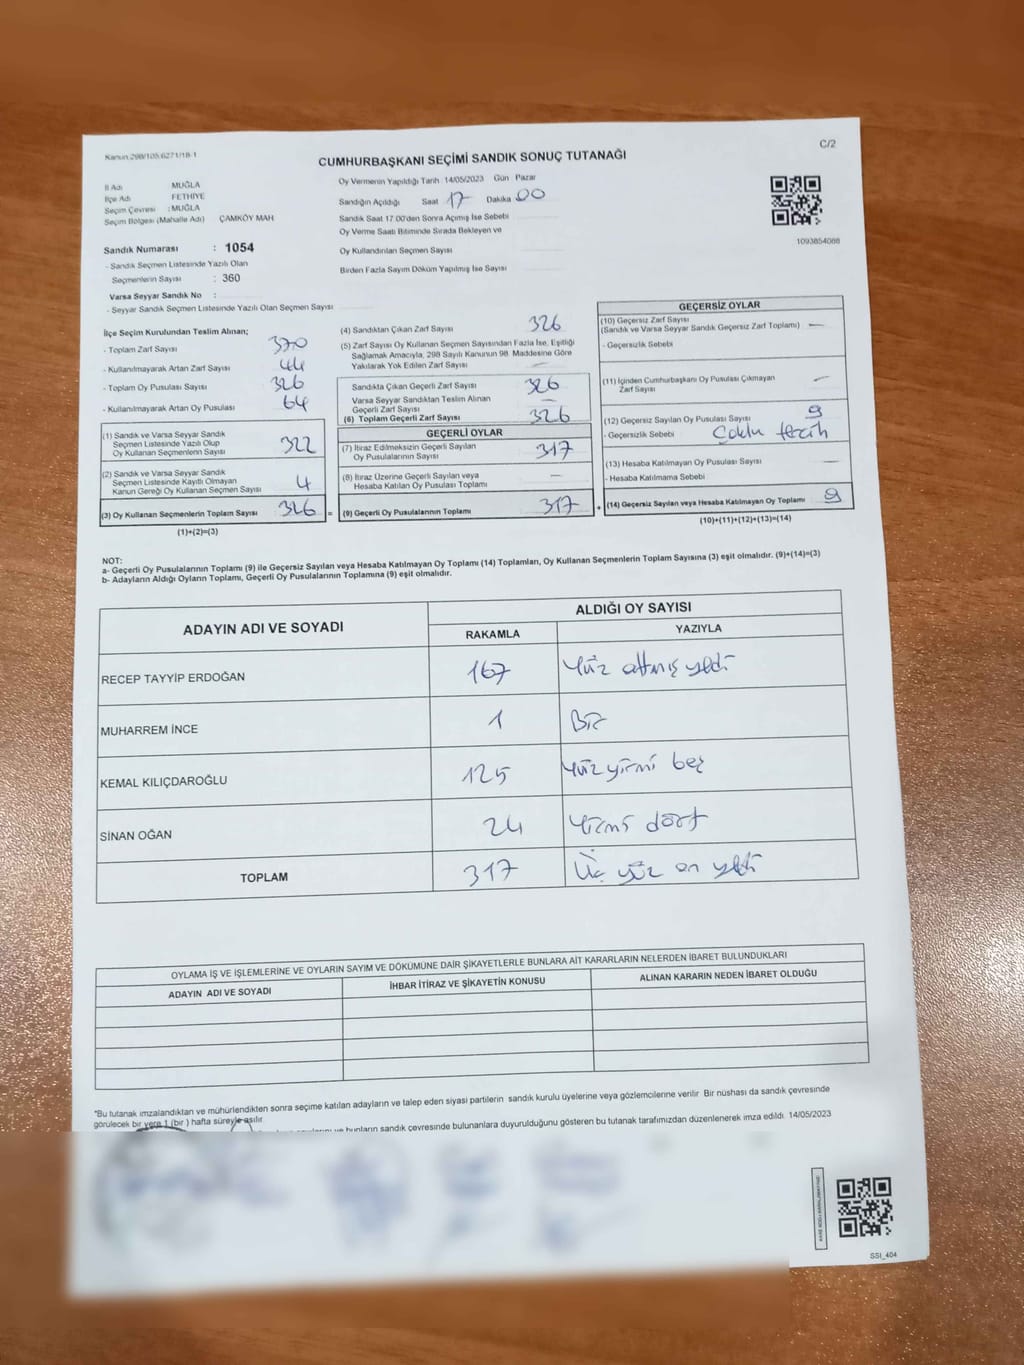 Kanun:298/105:6271/18-1
C/2
CUMHURBAŞKANI SEÇİMİ SANDIK SONUÇ TUTANAĞI
İl Adı MUĞLA
İlçe Adı FETHİYE
Seçim Çevresi : MUĞLA
Seçim Bölgesi (Mahalle Adı) ÇAMKÖY MAH
Sandık Numarası : 1054
- Sandık Seçmen Listesinde Yazılı Olan
Seçmenlerin Sayısı : 360
Varsa Seyyar Sandık No :
- Seyyar Sandık Seçmen Listesinde Yazılı Olan Seçmen Sayısı
Oy Vermenin Yapıldığı Tarih :14/05/2023 Gün Pazar
Sandığın Açıldığı Saat 17 Dakika 00
Sandık Saat 17:00'den Sonra Açımış İse Sebebi
Oy Verme Saati Bitiminde Sırada Bekleyen ve
Oy Kullandırılan Seçmen Sayısı
Birden Fazla Sayım Döküm Yapılmış İse Sayısı
1093854086
İlçe Seçim Kurulundan Teslim Alınan;
- Toplam Zarf Sayısı 370
- Kullanılmayarak Artan Zarf Sayısı 44
- Toplam Oy Pusulası Sayısı 326
- Kullanılmayarak Artan Oy Pusulası 64
(1) Sandık ve Varsa Seyyar Sandık
Seçmen Listesinde Yazılı Olup
Oy Kullanan Seçmenlerin Sayısı 322
(2) Sandık ve Varsa Seyyar Sandık
Seçmen Listesinde Kayıtlı Olmayan
Kanun Gereği Oy Kullanan Seçmen Sayısı 4
(3) Oy Kullanan Seçmenlerin Toplam Sayısı 326 =
(1)+(2)=(3)
(4) Sandıktan Çıkan Zarf Sayısı 326
(5) Zarf Sayısı Oy Kullanan Seçmen Sayısından Fazla İse, Eşitliği
Sağlamak Amacıyla, 298 Sayılı Kanunun 98. Maddesine Göre
Yakılarak Yok Edilen Zarf Sayısı —
Sandıkta Çıkan Geçerli Zarf Sayısı 326
Varsa Seyyar Sandıktan Teslim Alınan
Geçerli Zarf Sayısı —
(6) Toplam Geçerli Zarf Sayısı 326
GEÇERLİ OYLAR
(7) İtiraz Edilmeksizin Geçerli Sayılan
Oy Pusulalarının Sayısı 317
(8) İtiraz Üzerine Geçerli Sayılan veya
Hesaba Katılan Oy Pusulası Toplamı —
(9) Geçerli Oy Pusulalarının Toplamı 317 +
GEÇERSİZ OYLAR
(10) Geçersiz Zarf Sayısı
(Sandık ve Varsa Seyyar Sandık Geçersiz Zarf Toplamı) —
- Geçersizlik Sebebi
(11) İçinden Cumhurbaşkanı Oy Pusulası Çıkmayan
Zarf Sayısı —
(12) Geçersiz Sayılan Oy Pusulası Sayısı 9
- Geçersizlik Sebebi Çoklu tercih
(13) Hesaba Katılmayan Oy Pusulası Sayısı —
- Hesaba Katılmama Sebebi
(14) Geçersiz Sayılan veya Hesaba Katılmayan Oy Toplamı 9
(10)+(11)+(12)+(13)=(14)
NOT:
a- Geçerli Oy Pusulalarının Toplamı (9) ile Geçersiz Sayılan veya Hesaba Katılmayan Oy Toplamı (14) Toplamları, Oy Kullanan Seçmenlerin Toplam Sayısına (3) eşit olmalıdır. (9)+(14)=(3)
b- Adayların Aldığı Oyların Toplamı, Geçerli Oy Pusulalarının Toplamına (9) eşit olmalıdır.
ADAYIN ADI VE SOYADI ALDIĞI OY SAYISI
RAKAMLA YAZIYLA
RECEP TAYYİP ERDOĞAN 167 Yüz altmış yedi
MUHARREM İNCE 1 Bir
KEMAL KILIÇDAROĞLU 125 Yüz yirmi beş
SİNAN OĞAN 24 Yirmi dört
TOPLAM 317 Üç yüz on yedi
OYLAMA İŞ VE İŞLEMLERİNE VE OYLARIN SAYIM VE DÖKÜMÜNE DAİR ŞİKAYETLERLE BUNLARA AİT KARARLARIN NELERDEN İBARET BULUNDUKLARI
ADAYIN ADI VE SOYADI İHBAR İTİRAZ VE ŞİKAYETİN KONUSU ALINAN KARARIN NEDEN İBARET OLDUĞU
*Bu tutanak imzalandıktan ve mühürlendikten sonra seçime katılan adayların ve talep eden siyasi partilerin sandık kurulu üyelerine veya gözlemcilerine verilir. Bir nüshası da sandık çevresinde
görülecek bir yere 1 (bir ) hafta süreyle asılır.
ve bunların sandık çevresinde bulunanlara duyurulduğunu gösteren bu tutanak tarafımızdan düzenlenerek imza edildi. 14/05/2023
SSI_404